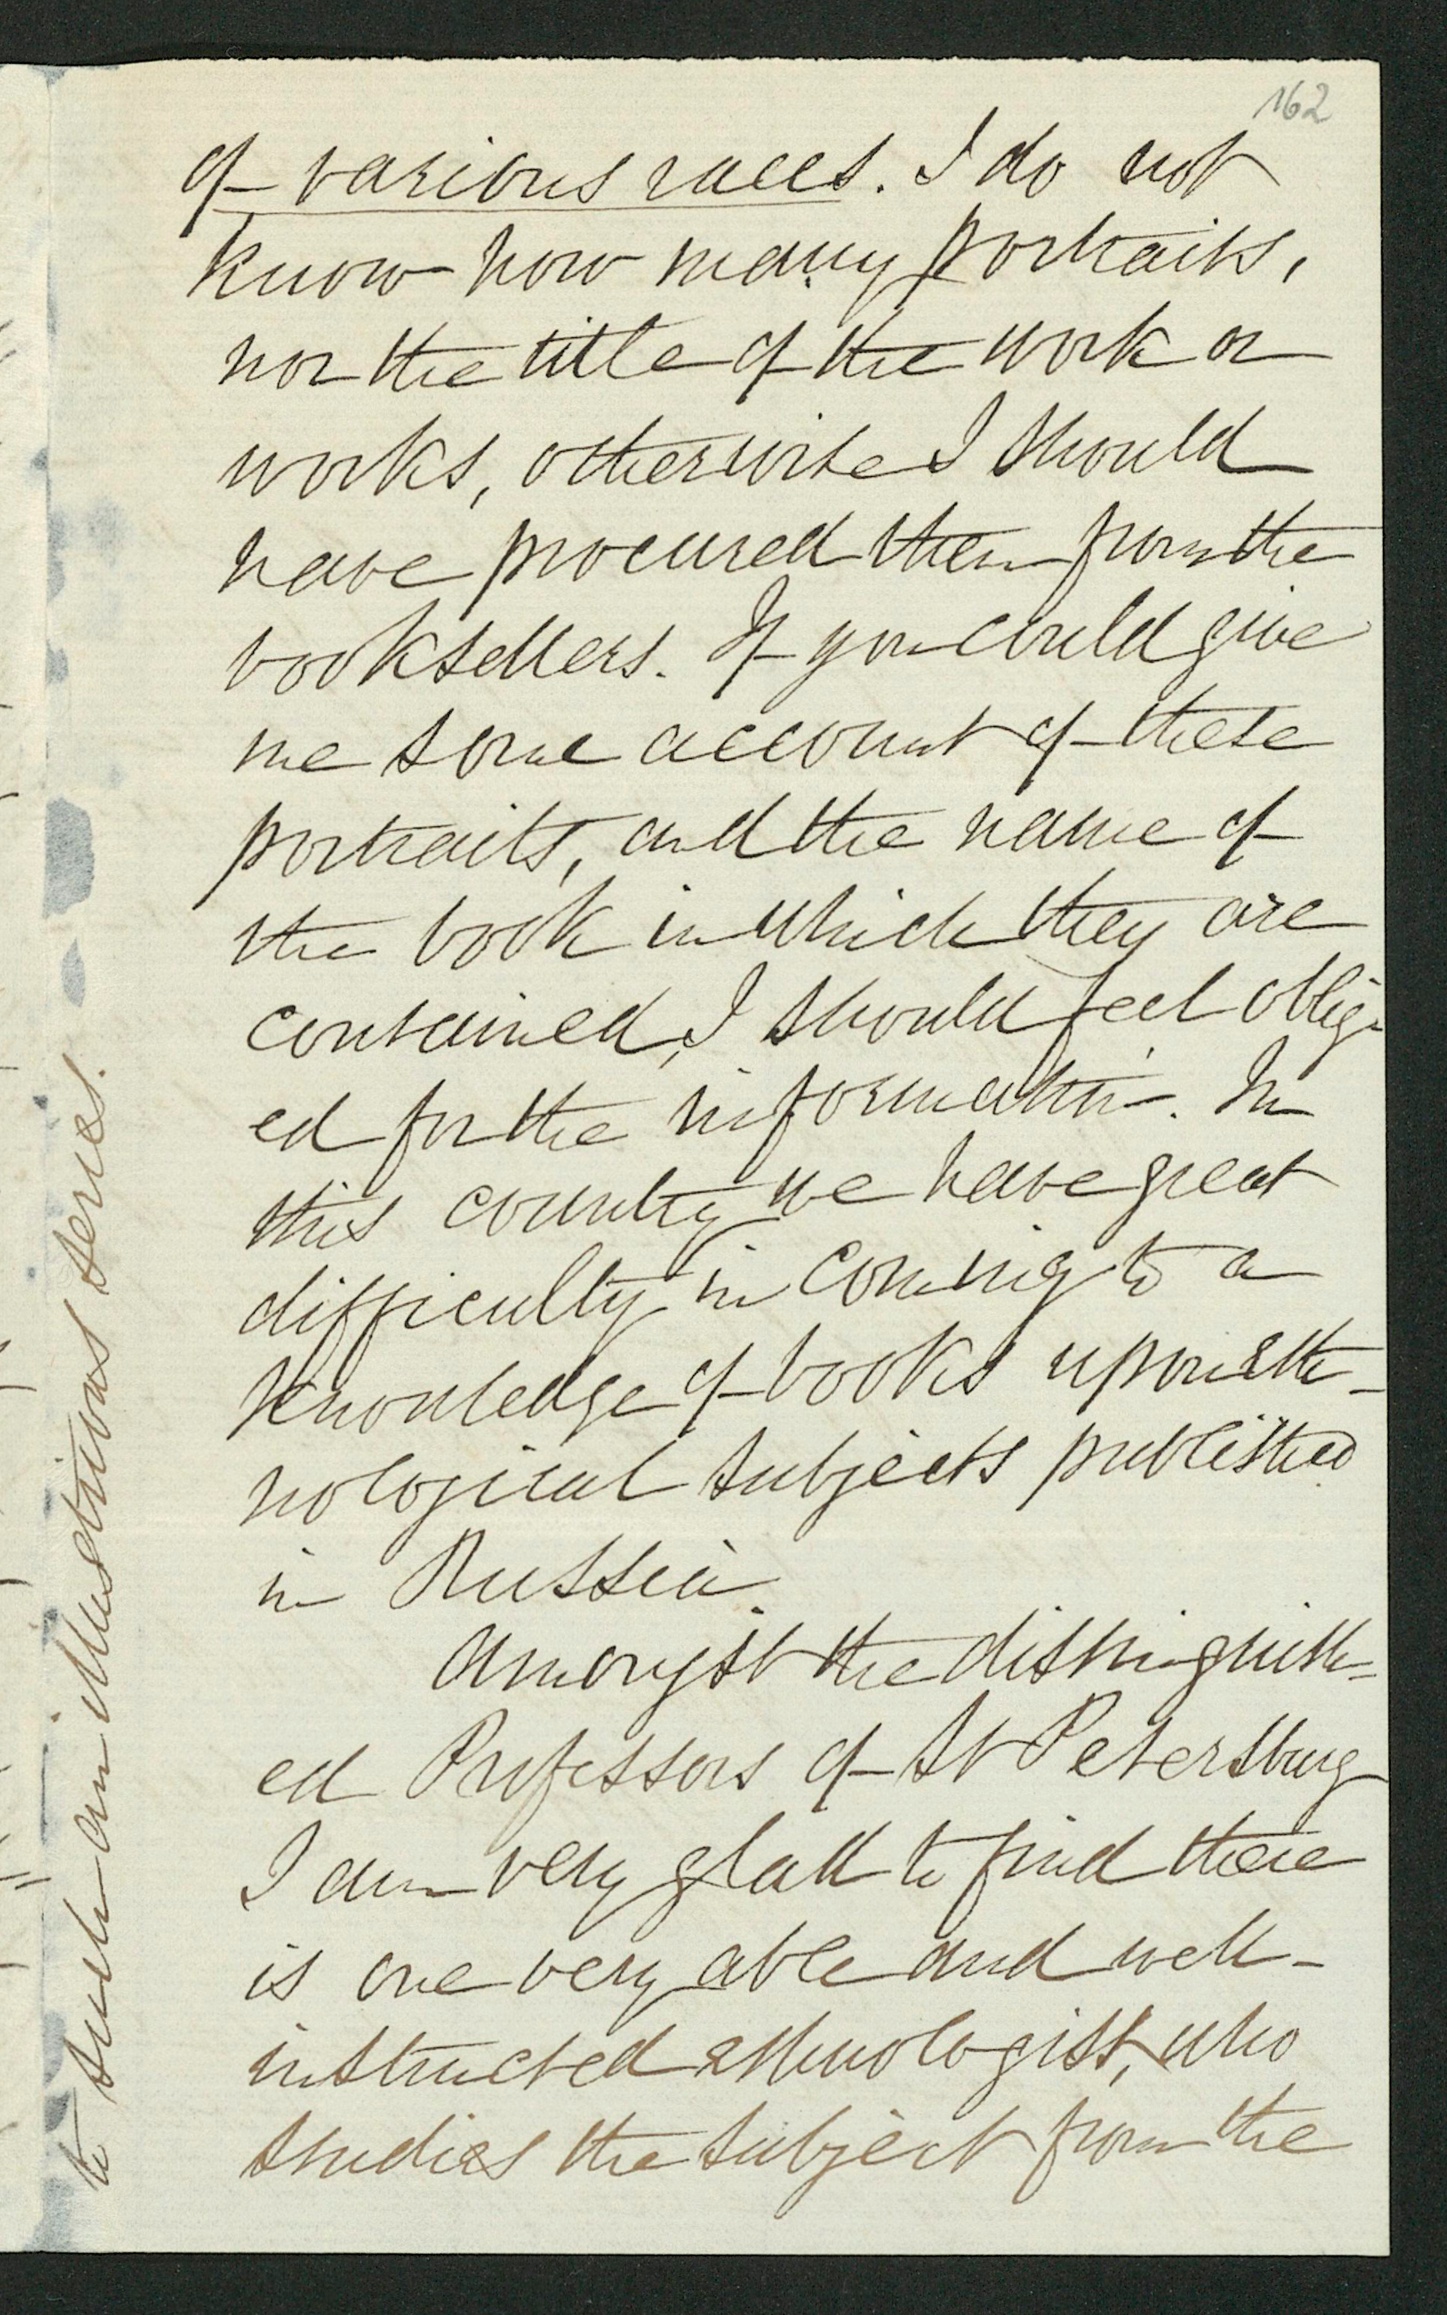 162
of various races. I do not
know how many portraits,
nor the title of the work or
works, otherwise I should
have procured them from the
booksellers. If you could give
me some account of these
portraits, and the name of
the book in which they are
contained, I should feel oblig-
ed for the information. In
this country we have great
difficulty in coming to a
knowledge of books upon eth-
nological subjects published
in Russia.
Amongst the distinguish-
ed Professors of St Petersburg
I am very glad to find there
is one very able and well-
instructed ethnologist, who
studies the subject from the
to such an illustrious series.